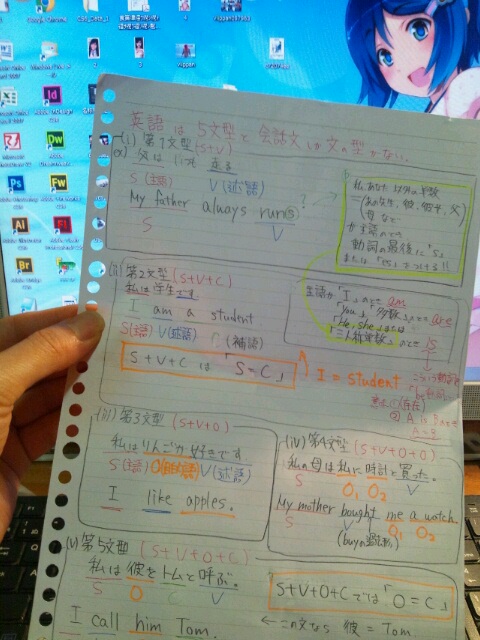 英語は5文型と会話文しか文の型がない。
(i) 第1文型 (S+V)
(ex) 父はいつも走る
S (主語) V (述語)
My father always run(s)?
S V
私、あなた以外の単数
=(あの先生, 彼, 彼女, 父)
(母 など
が主語のとき
動詞の最後に「s」
または「es」をつける!!
(ii) 第2文型 (S+V+C)
私は学生です
I am a student
S(主語) V(述語) C (補語)
S+V+C は 「S=C」
I = student
主語が「I」のとき am
「You」「複数」のとき are
「He, she」または
「三人称単数」のとき is
(iii) 第3文型 (S+V+O)
私はりんごが好きです
S(主語) O(目的語) V(述語)
I like apples.
(iv) 第4文型 (S+V+O+O)
私の母は私に時計を買った。
S O1 O2 V
My mother bought me a watch.
S V O1 O2
(buyの過去形)
(v) 第5文型 (S+V+O+C)
私は彼をトムと呼ぶ。
S O C V
S+V+O+Cでは「O=C」
I call him Tom.
← この文なら 彼=Tom.